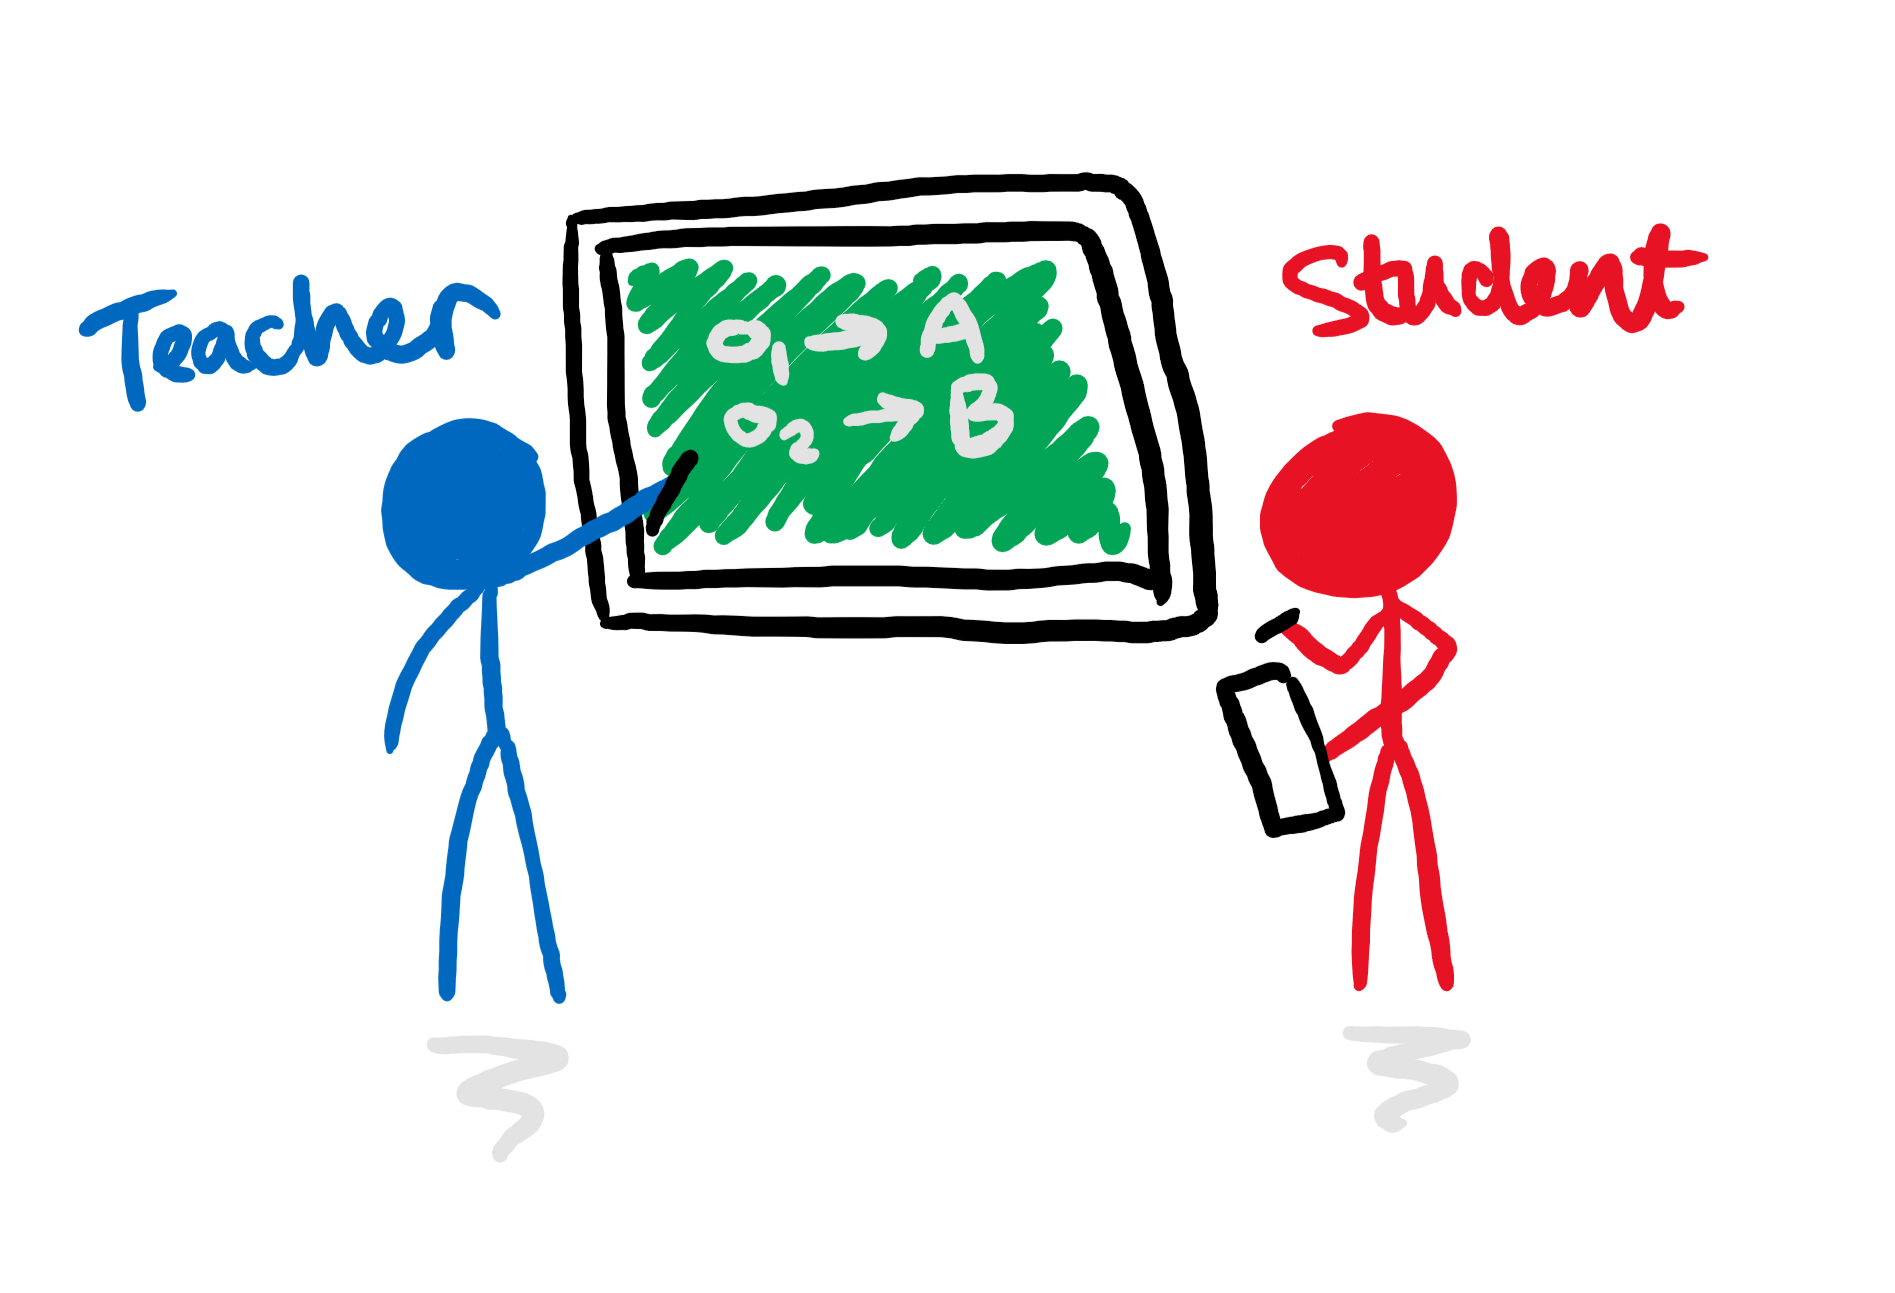 Teacher
o₁ → A
o₂ → B
Student